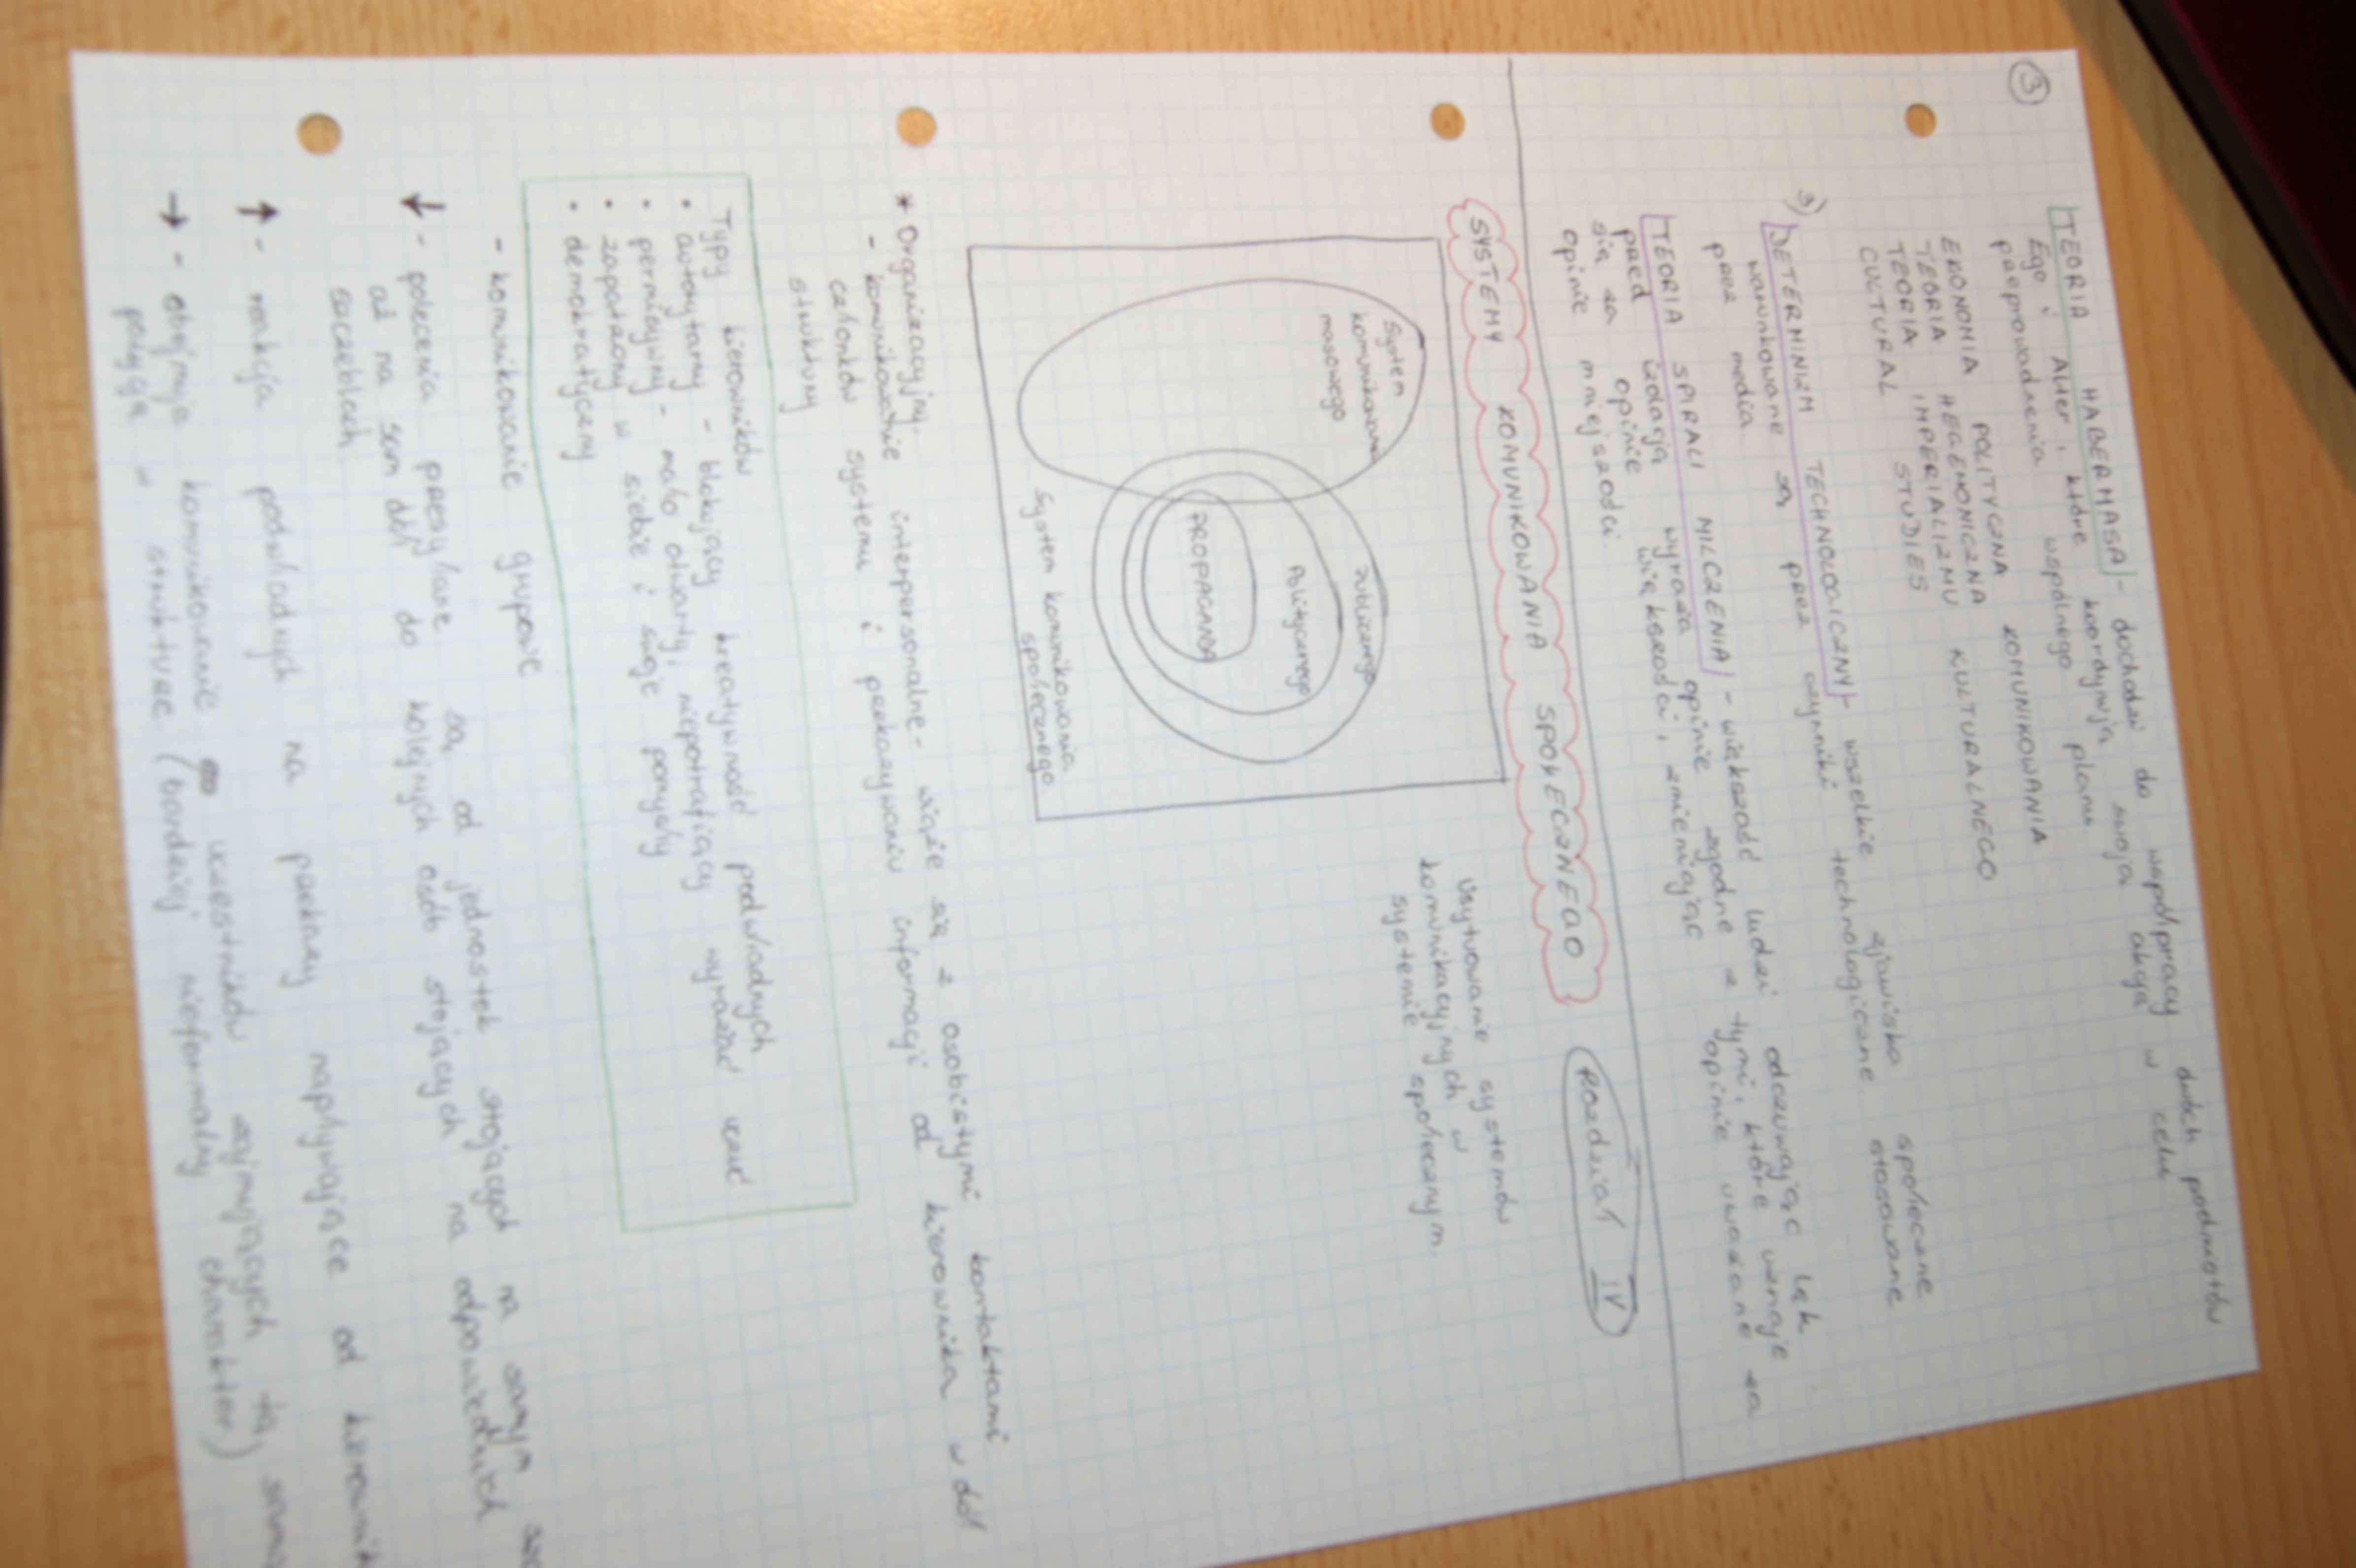 3
TEORIA HABERMASA - dochodzi do współpracy dwóch podmiotów
Ego i Alter, które koordynują swoją akcję w celu
przeprowadzenia wspólnego planu
EKONOMIA POLITYCZNA KOMUNIKOWANIA
TEORIA HEGEMONICZNA
TEORIA IMPERIALIZMU KULTURALNEGO
CULTURAL STUDIES
3)
DETERMINIZM TECHNOLOGICZNY - wszelkie zjawiska społeczne
warunkowane są przez czynniki technologiczne stosowane
przez media
TEORIA SPIRALI MILCZENIA - większość ludzi odczuwając lęk
przed izolacją wyraża opinie zgodne z tymi, które uważane
się za opinie większości, zmieniając opinie
opinie mniejszości.
SYSTEMY KOMUNIKOWANIA SPOŁECZNEGO
Rozdział IV
System
komunikowania
masowego
publicznego
Politycznego
PROPAGANDA
System komunikowania
społecznego
Usytuowanie systemów
komunikacyjnych w
systemie społecznym
* Organizacyjny.
- komunikowanie interpersonalne - wiąże się z osobistymi kontaktami
członków systemu i przekazywaniu informacji od kierownika w dół
struktury
Typy kierowników
• autorytarny - blokujący kreatywność podwładnych
• permisywny - mało otwarty, niepotrafiący wyrażać uczuć
• zapatrzony w siebie i swoje pomysły
• demokratyczny
- komunikowanie grupowe
↓ - polecenia przesyłane są od jednostek stojących na samym
aż na sam dół do kolejnych osób stojących na odpowiednich
szczeblach
↑ - reakcja podwładnych na przekazy napływające od
→ - obejmuje komunikowanie uczestników zajmujących tą samą
pozycję w strukturze (bardziej nieformalny charakter)